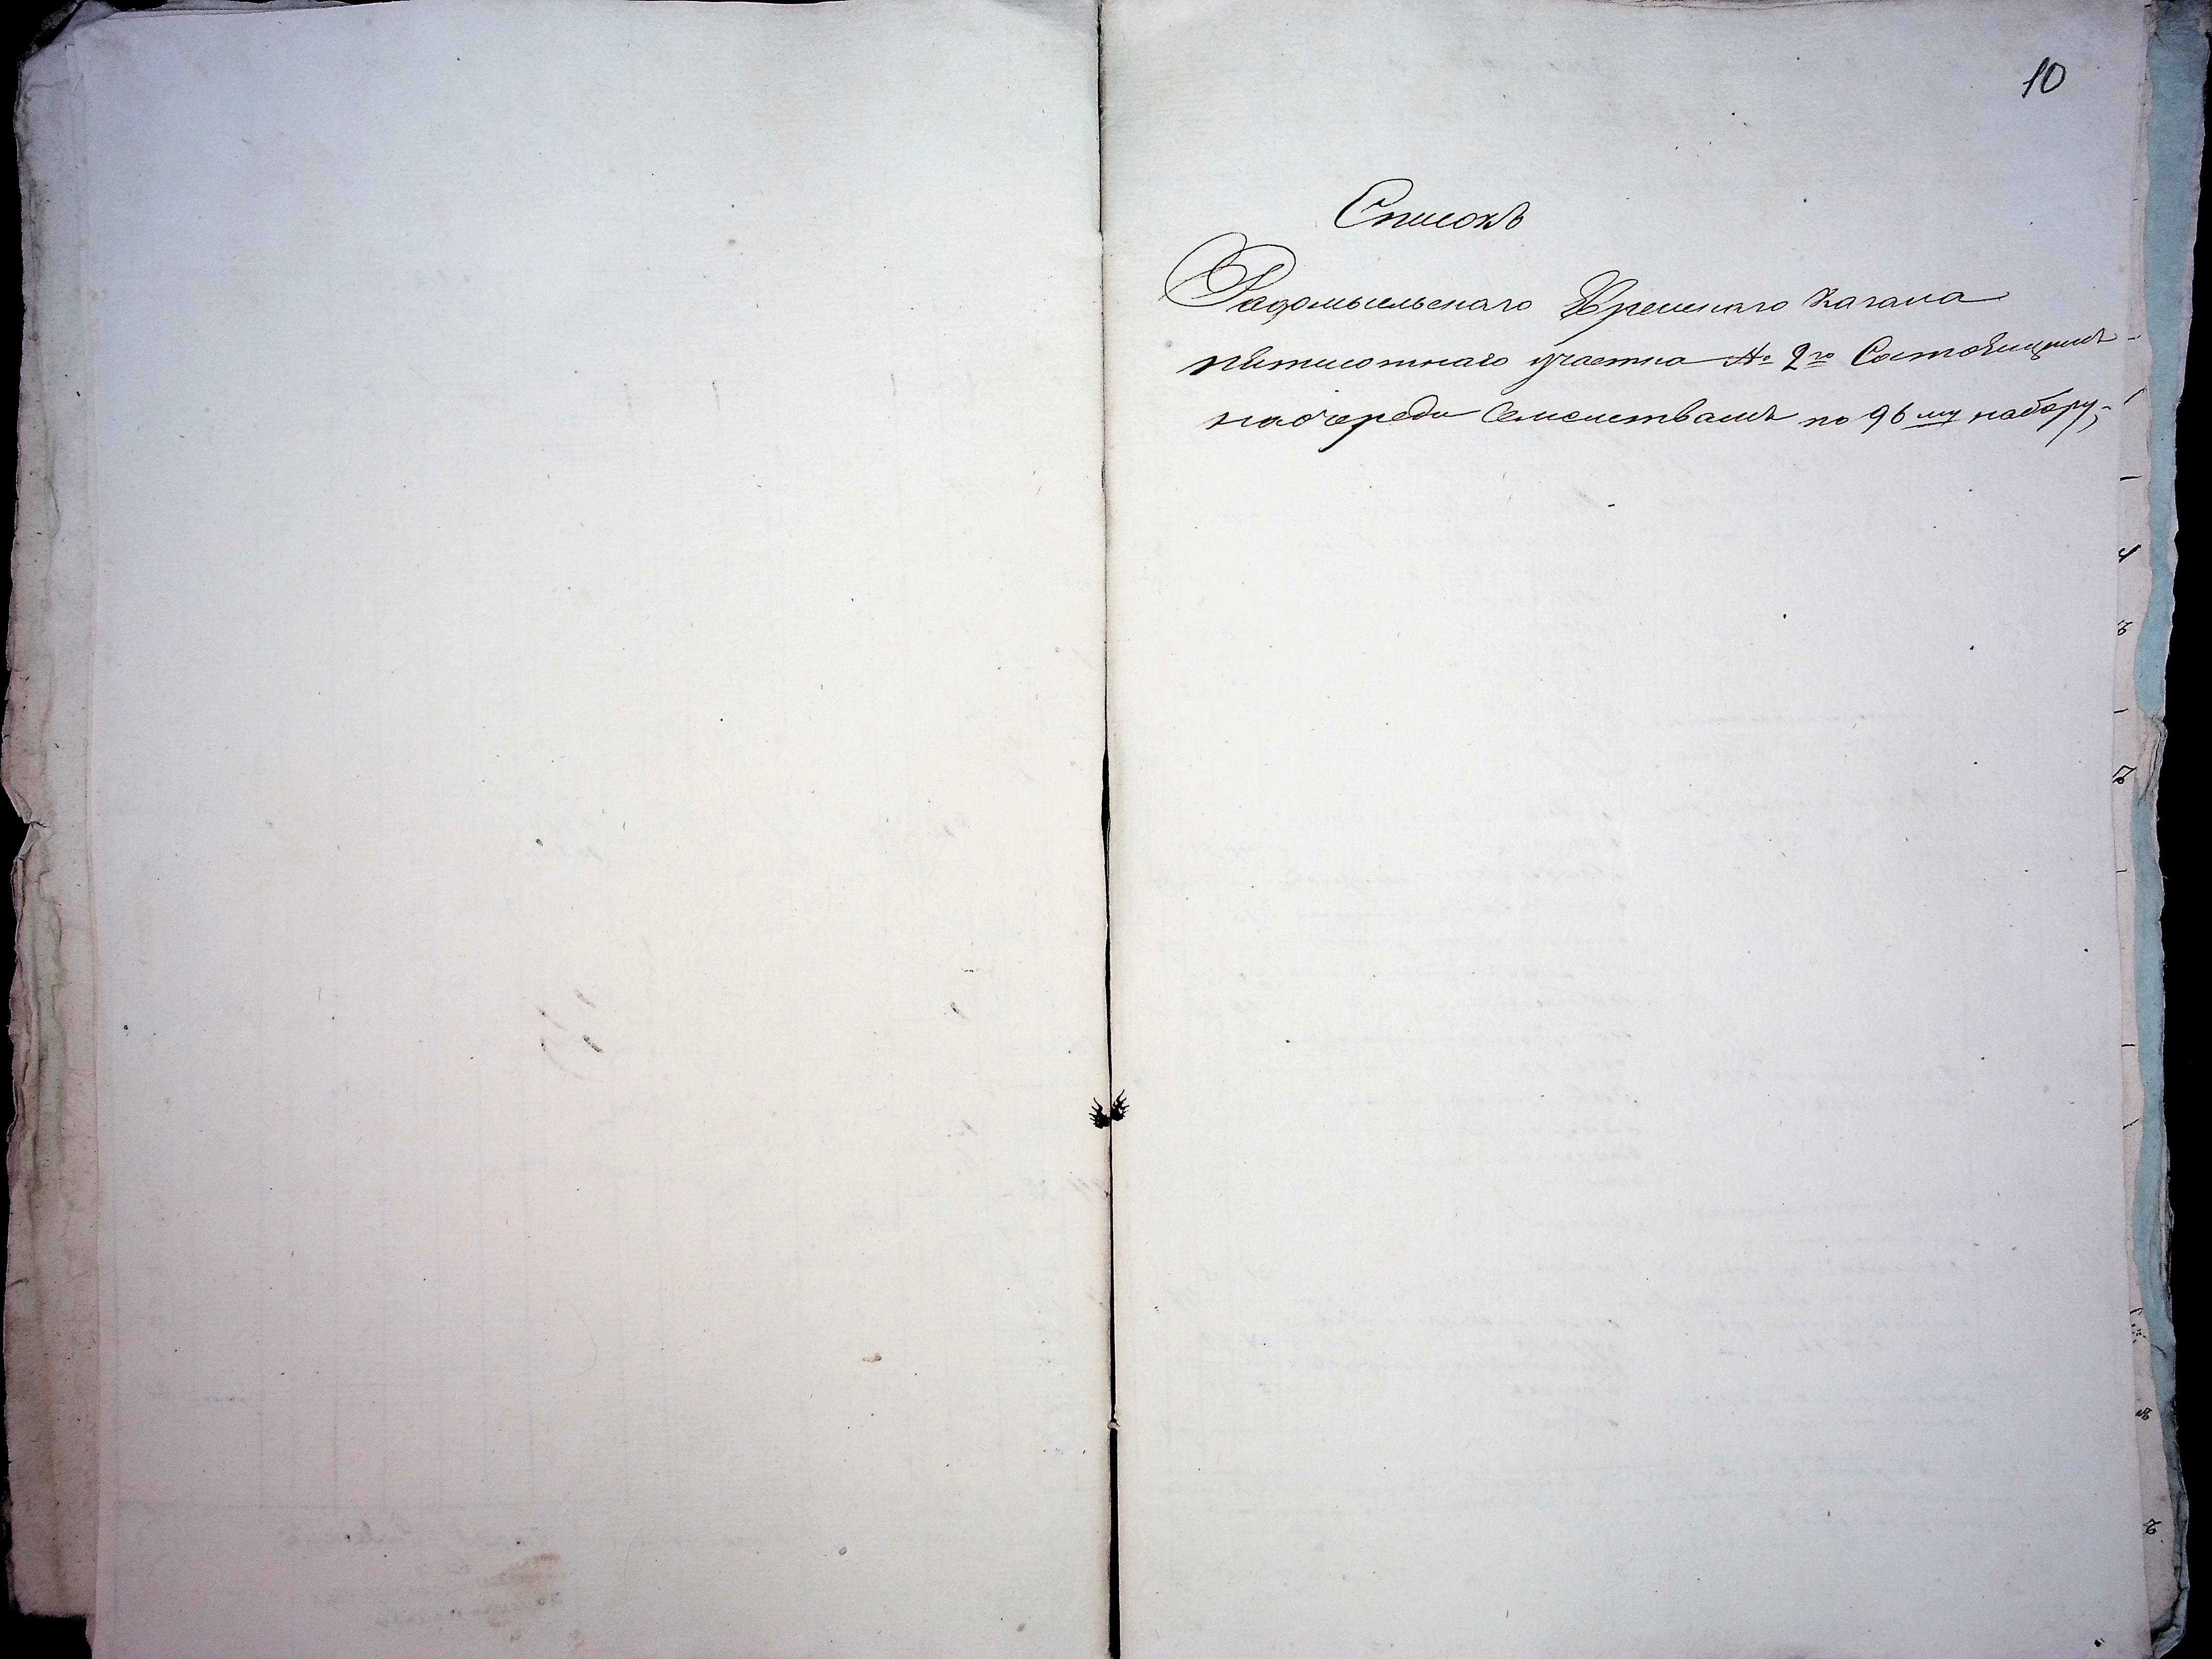 10
Списокъ
Радомысльскаго Еврейскаго Кагала
пятисотнаго участка № 2го Состоящимъ
наочереди Семействамъ по 96му набору,